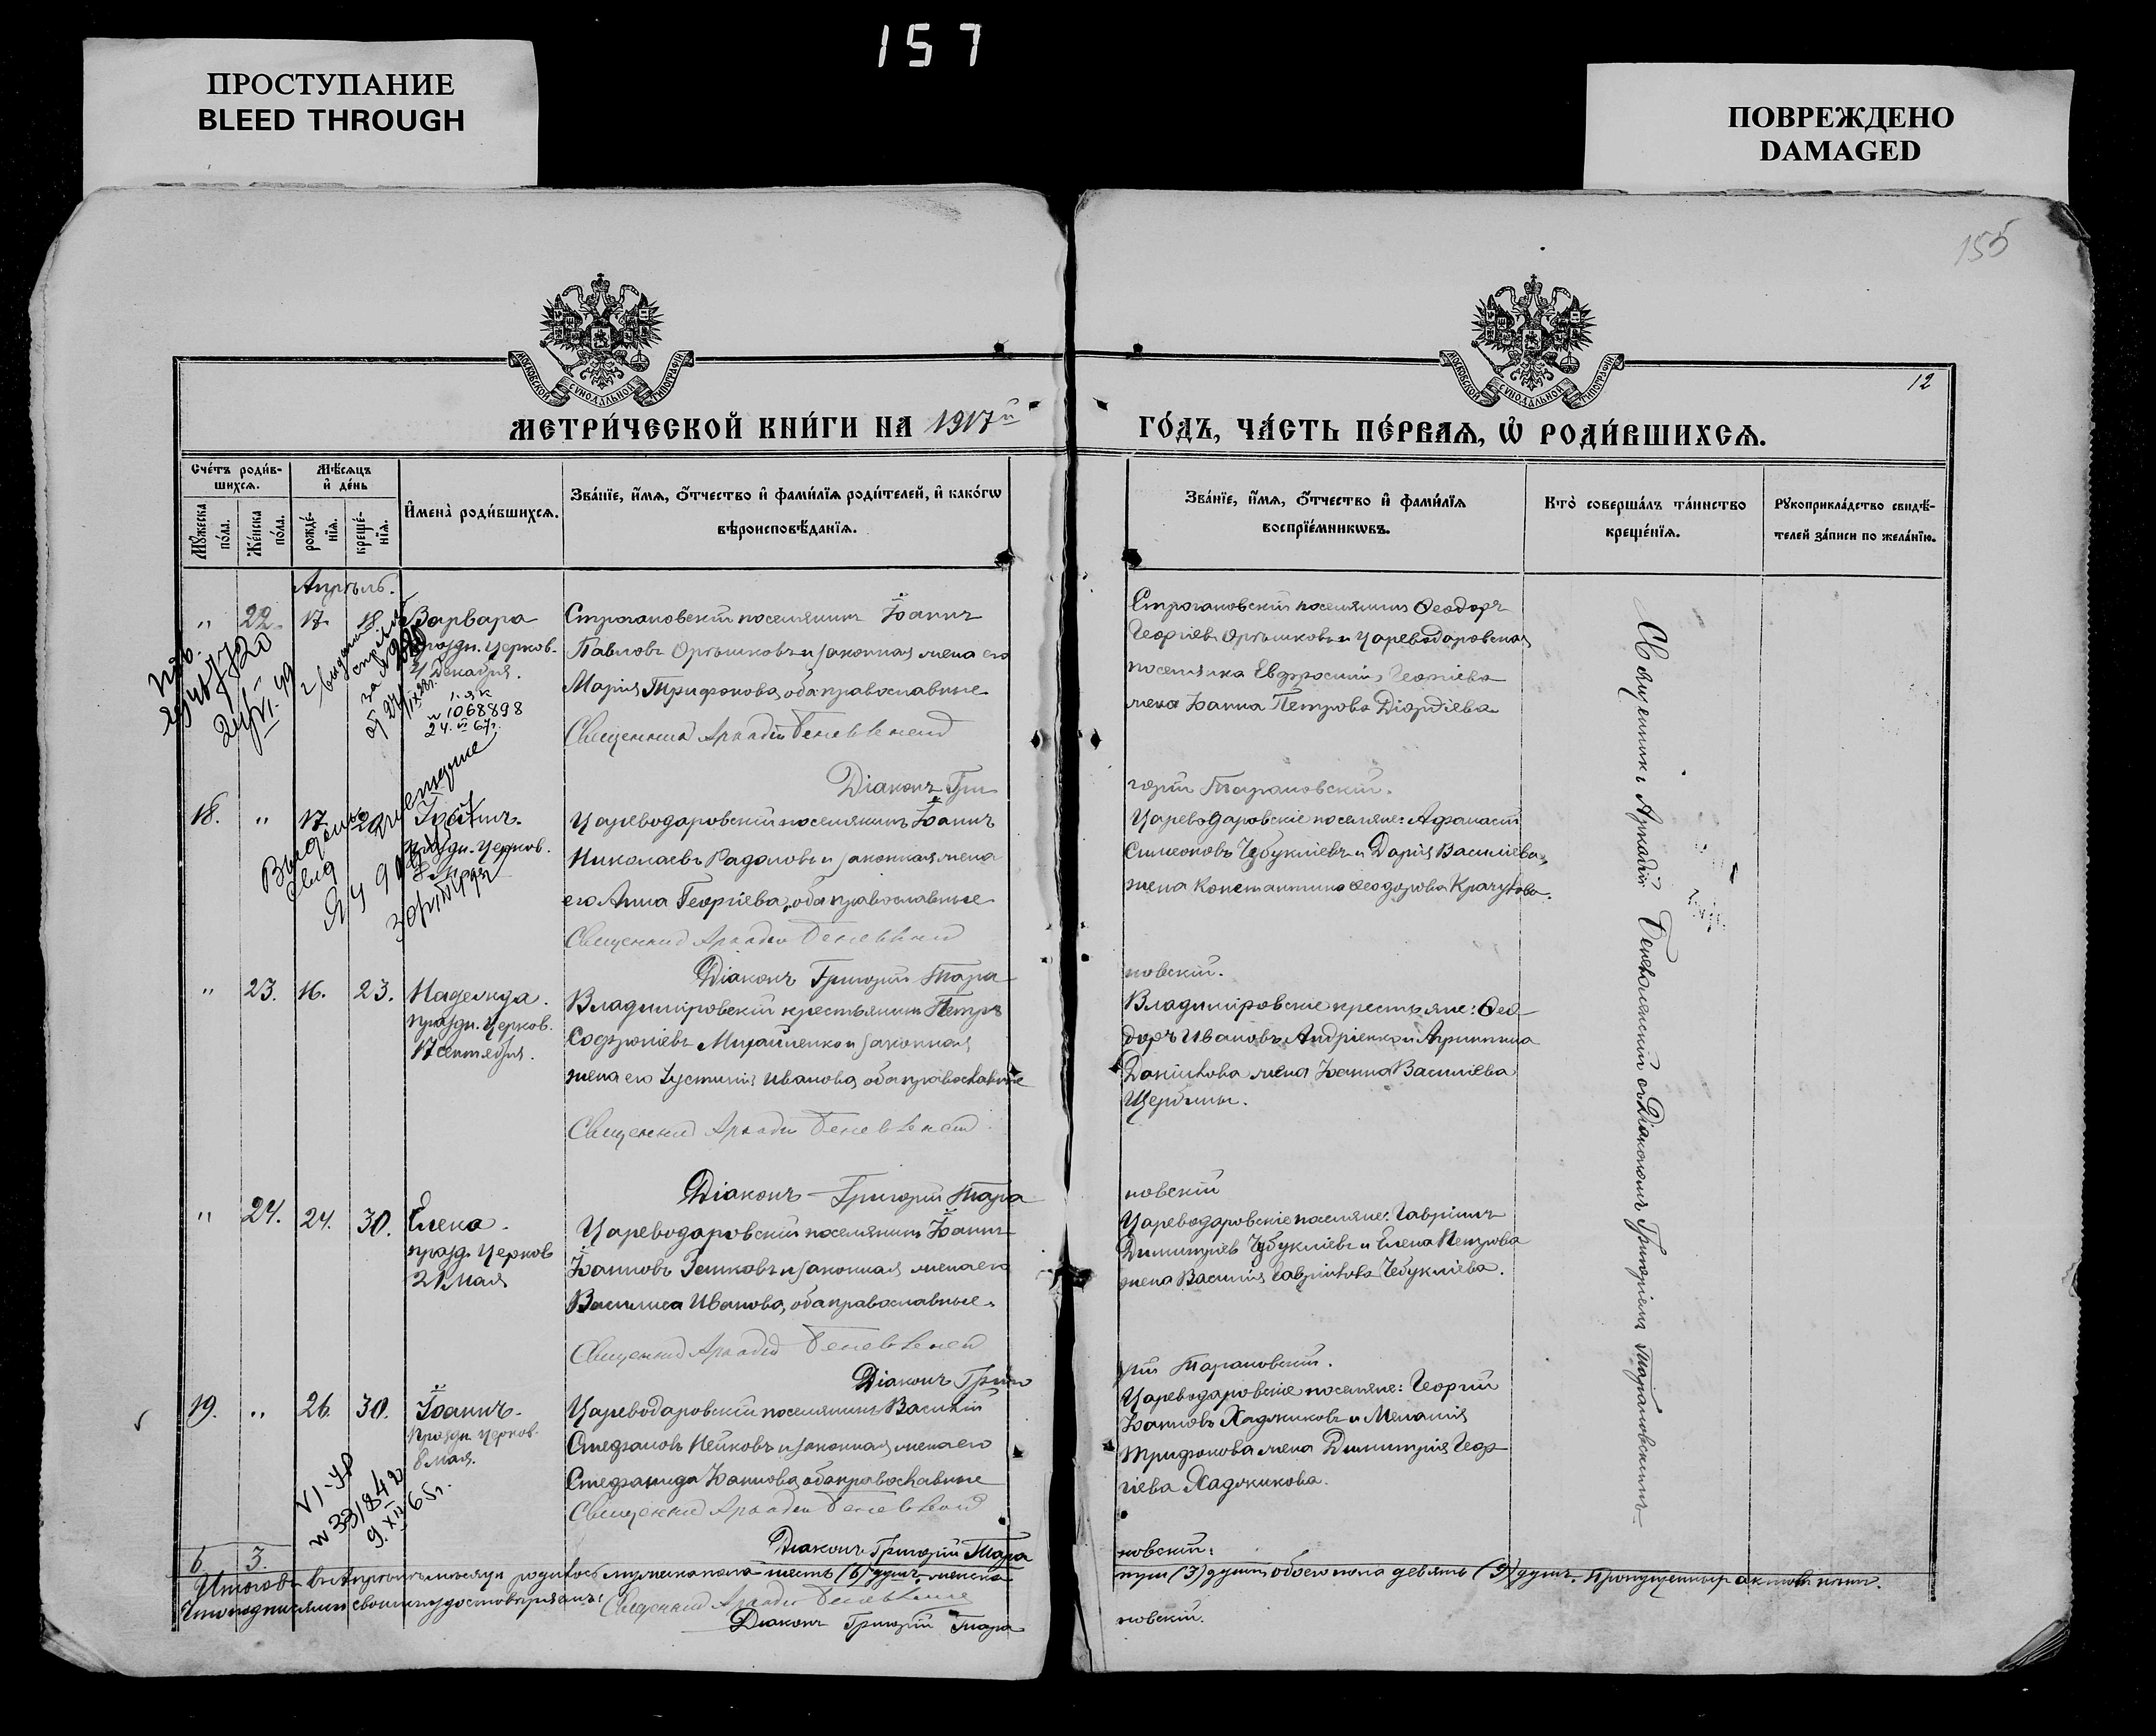 157
ПРОСТУПАНИЕ
BLEED THROUGH
ПОВРЕЖДЕНО
DAMAGED
155
12
МОСКОВСКОЙ СѴНОДАЛЬНОЙ ТИПОГРАФІИ
МОСКОВСКОЙ СѴНОДАЛЬНОЙ ТИПОГРАФІИ
МЕТРИ́ЧЕСКОЙ КНИ́ГИ НА 1917й ГО́ДЪ, ЧА́СТЬ ПЕ́РВАѦ, Ѡ҆ РОДИ́ВШИХСѦ.
Сче́тъ роди́в-
шихсѧ.
Мꙋ́жеска по́ла.
Же́нска по́ла.
Мѣ́сѧцъ
и҆ де́нь
рожде́-
нїѧ.
креще́-
нїѧ.
И҆мена̀ роди́вшихсѧ.
Зва́нїе, и҆́мѧ, ѻ҆́тчество и҆ фами́лїѧ роди́телей, и҆ како́гѡ
вѣроисповѣ́данїѧ.
Зва́нїе, и҆́мѧ, ѻ҆́тчество и҆ фами́лїѧ
воспрїе́мникѡвъ.
Кто̀ соверша́лъ та́инство
креще́нїѧ.
Рꙋкоприкла́дство свидѣ́-
телей за́писи по жела́нїю.
Апрѣль.
" 22. 17. 18 Варвара
праздн. церков.
4 Декабря.
I-ЯК
№ 1068898
24.VI 67г.
Строгановскій поселянинъ Іоаннъ
Павловъ Орѣшковъ и законная жена его
Марія Трифонова, оба православные
Священникъ Аркадій
Діаконъ Гри
Строгановскій поселянинъ Ѳеодоръ
Георгіевъ Орѣшковъ и Цареводаровская
поселянка Евфросинія Георгіева
жена Іоанна Петрова Діордіева
горій Тарановскій.
18. " 17. 20 Іоаннъ.
праздн. церков.
Цареводаровскій поселянинъ Іоаннъ
Николаевъ Радоловъ и законная жена
его Анна Георгіева, оба православные
Священникъ Аркадій
Діаконъ Григорій Тара
Цареводаровскіе поселяне: Афанасій
Симеоновъ Чубукліевъ и Дарія Василіева,
жена Константина Ѳеодорова
новскій.
" 23. 16. 23. Надежда.
праздн. церков.
17 сентября.
Владиміровскій крестьянинъ Петръ
Михайленко и законная
жена его Іустинія Иванова, оба православные
Священникъ Аркадій
Діаконъ Григорій Тара
Владиміровскіе крестьяне: Ѳео-
доръ Ивановъ Андріенко и Агриппина
Даніилова жена Іоанна Василіева
Щербины.
новскій
" 24. 24. 30. Елена.
празд. церков
21 мая
Цареводаровскій поселянинъ Іоаннъ
Іоанновъ и законная жена его
Василиса Иванова, оба православные.
Священникъ Аркадій
Діаконъ Григо
Цареводаровскіе поселяне: Гавріилъ
Димитріевъ Чубукліевъ и Елена Петрова
жена Василія Гавріилова Чубукліева.
рій Тарановскій.
19. " 26. 30. Іоаннъ.
праздн. церков.
8 мая.
VI-УР
№ 331842
9.XII 65г.
Цареводаровскій поселянинъ Василій
Стефановъ Пейковъ и законная жена его
Стефанида Іоаннова, оба православные
Священникъ Аркадій
Діаконъ Григорій Тара
Цареводаровскіе поселяне: Георгій
Іоанновъ Хаджиковъ и Меланія
Трифонова жена Димитрія Геор
гіева Хаджикова.
новскій.
Священникъ Аркадій съ Діакономъ Григоріемъ Тарановскимъ
6 3.
Итого въ Апрѣлѣ мѣсяцѣ родилось мужеска пола шесть (6) душъ, женска три (3) души обоего пола девять (9) душъ. Пропущенныхъ актовъ нѣтъ.
Что подписями своими удостовѣряемъ: Священникъ Аркадій
Діаконъ Григорій Тарановскій.